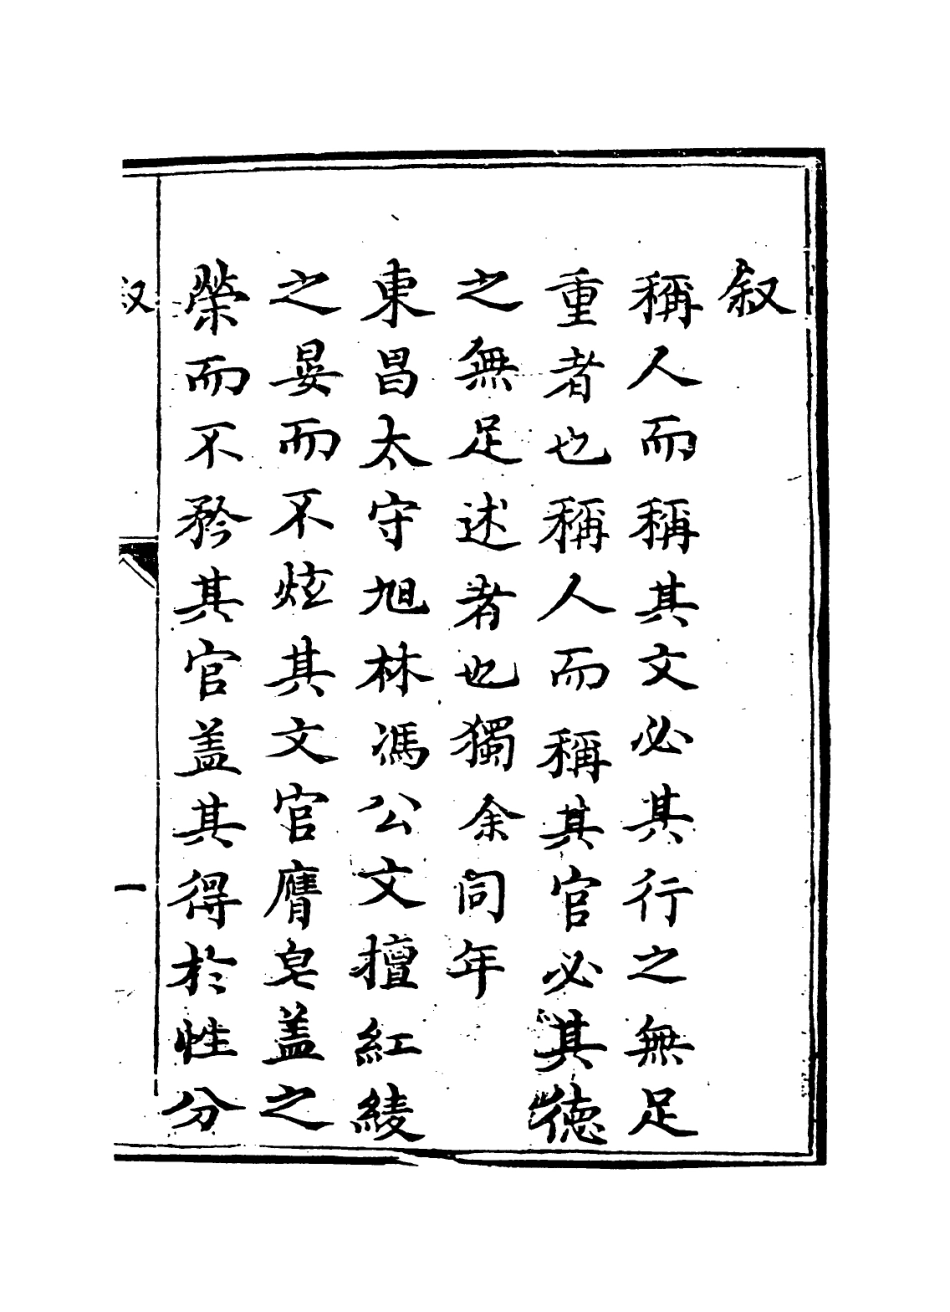 叙
稱人而稱其文必其行之無足
重者也稱人而稱其官必其德
之無足述者也獨余同年
東昌太守旭林馮公文擅紅綾
之宴而不炫其文官膺皂盖之
榮而不矜其官盖其得於性分
叙
一